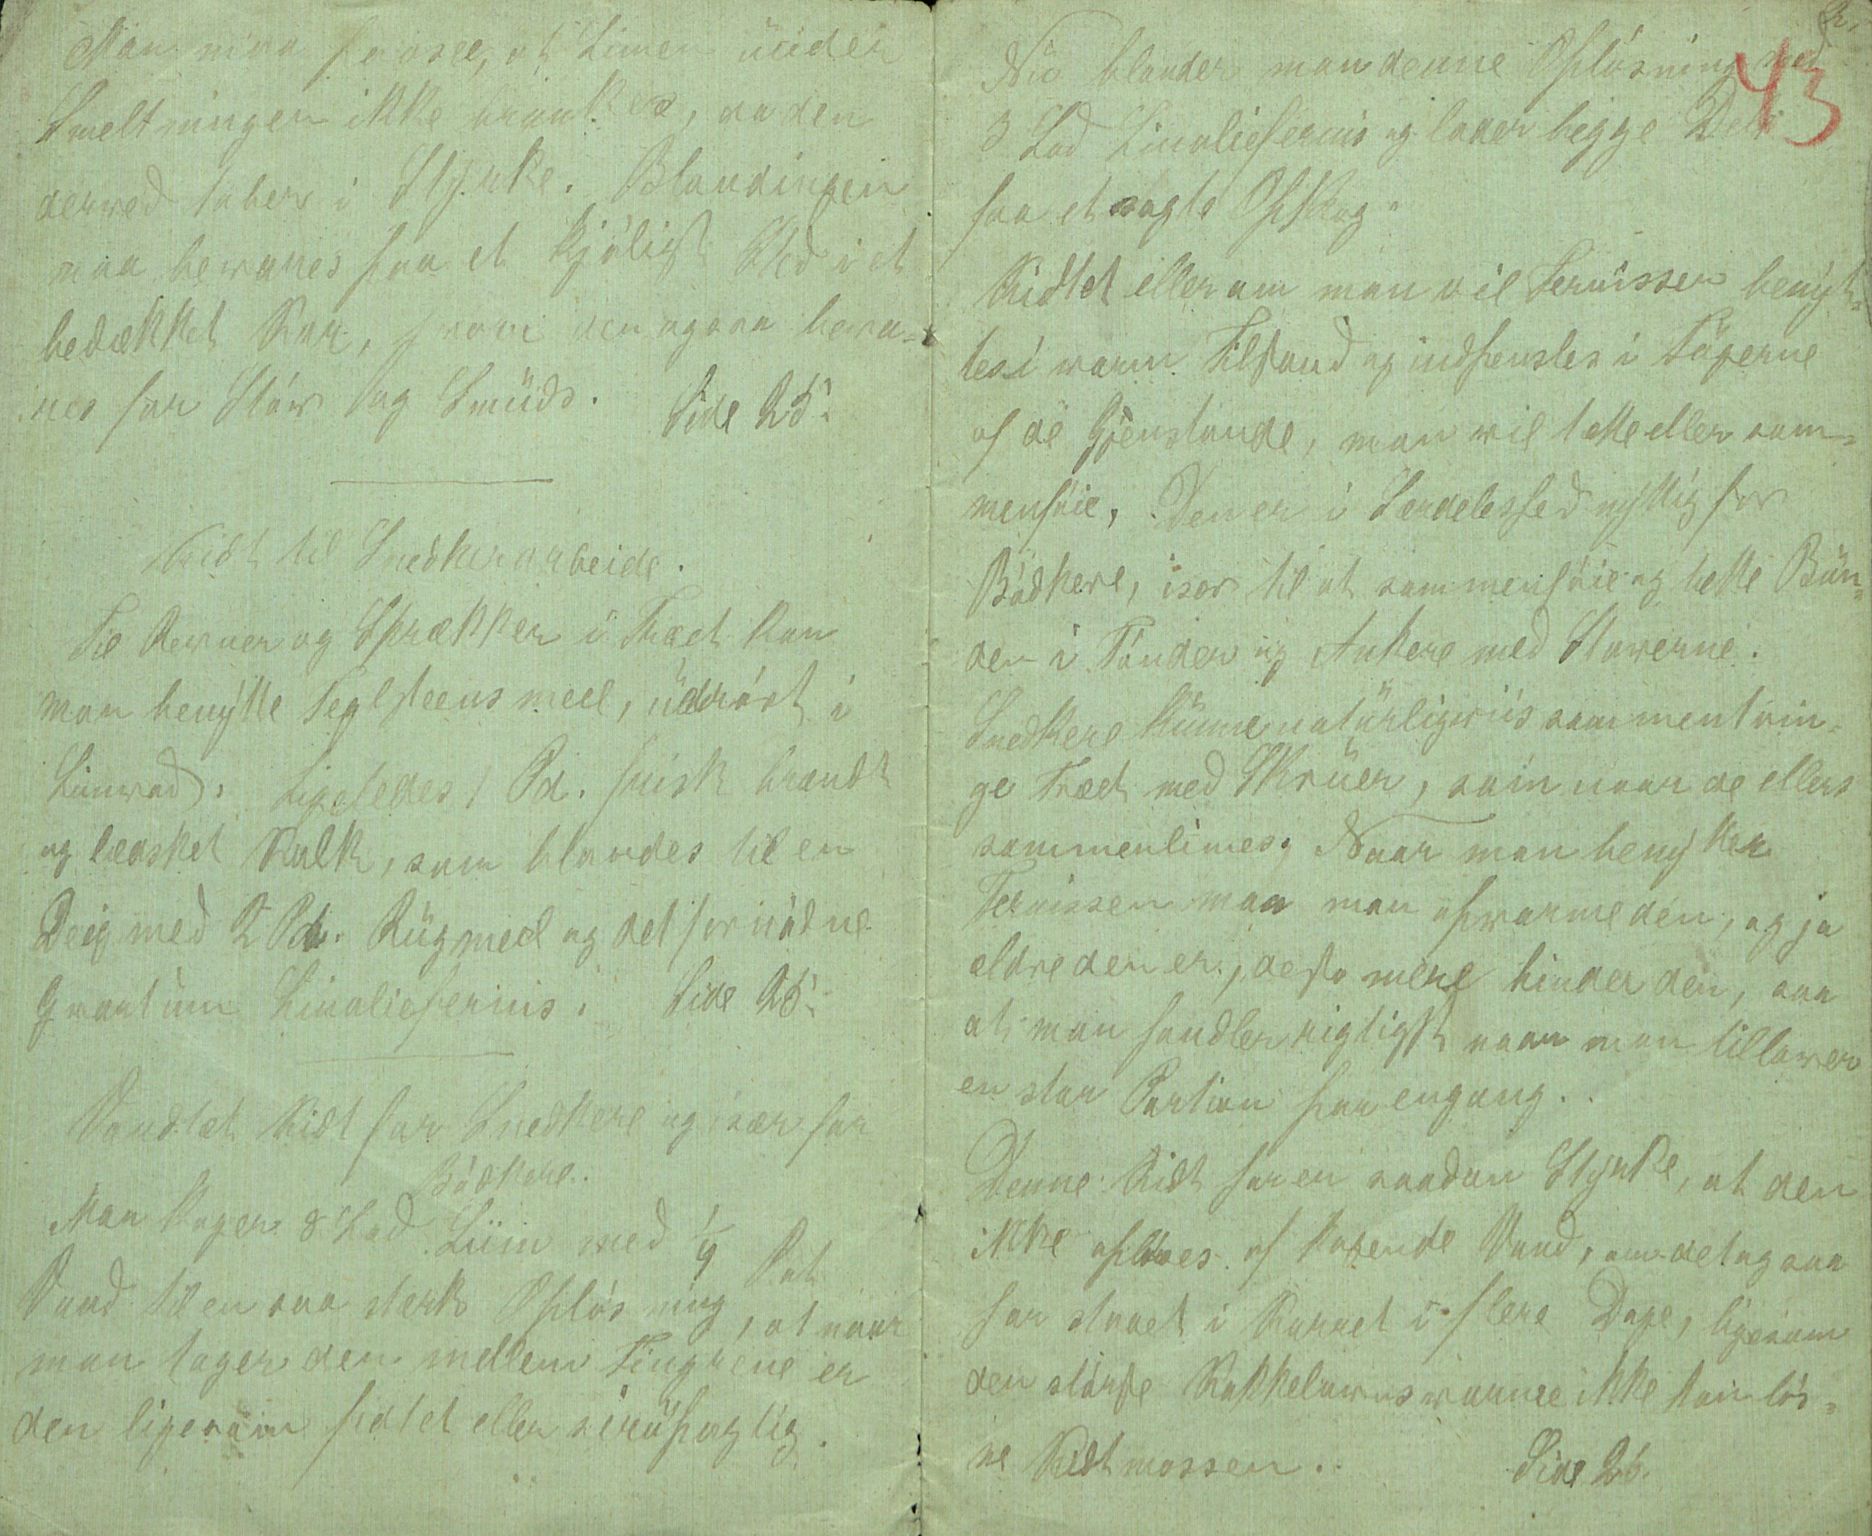 Man maa paasee, at Limen under
Smeltningen ikke brankes, da den
derved taber i Styrke. Blandingen
maa bevares paa et kjöligt Sted i et
bedækket Kar, hvor den ogsaa beva-
res for Stöv og Smuds. Side 25.
Kidt til Snedkerarbeide.
Til Revner og Sprækker i Træet kan
man benytte Teglsteensmeel, uddröst i
Limvad. Ligeledes 1 Pd. frisk brændt
og lædsket Kalk, som blandes til en
Deig med 2 Pd. Rugmeel og det fornödne
Qvantum Linoliefernis. Side 25.
Vandtæt Kidt for Snedkere og især for
Bödkere.
Man koger 8 Lod Liim med 1/4 Pot
Vand til en saa stærk Oplösning, at naar
man tager den mellem Fingrene er
den ligesom fedtet eller sirupagtig.
2.
43
Nu blander man denne Oplösning med
3 Lod Linoliefernis og lader begge Dele
faa et sagte Opkog.
Kidtet eller om man vil Fernissen benyt-
tes i varm Tilstand og indpensles i Fügerne
af de Gjenstande, man vil tætte eller sam-
menföie. Den er i Særdeleshed nyttig for
Bödkere, især til at sammenföie og tætte Bun-
den i Tönder og Ankere med Staverne.
Snedkere kunne naturligviis sammentvin-
ge Træet med Skruer, som naar de ellers
sammenlimes. Naar man benytter
Fernissen maa man opvarme den, og jo
ældre den er, desto mere binder den, saa
at man handler rigtigst naar man tillaver
en stor Portion paa engang.
Denne Kidt har en saadan Styrke, at den
ikke oplöses af kogende Vand, om det ogsaa
har staaet i Karret i flere Dage, ligesom
den störste Kakkelovnsvarme ikke kan lös-
ne Kidtmassen. Side 26.